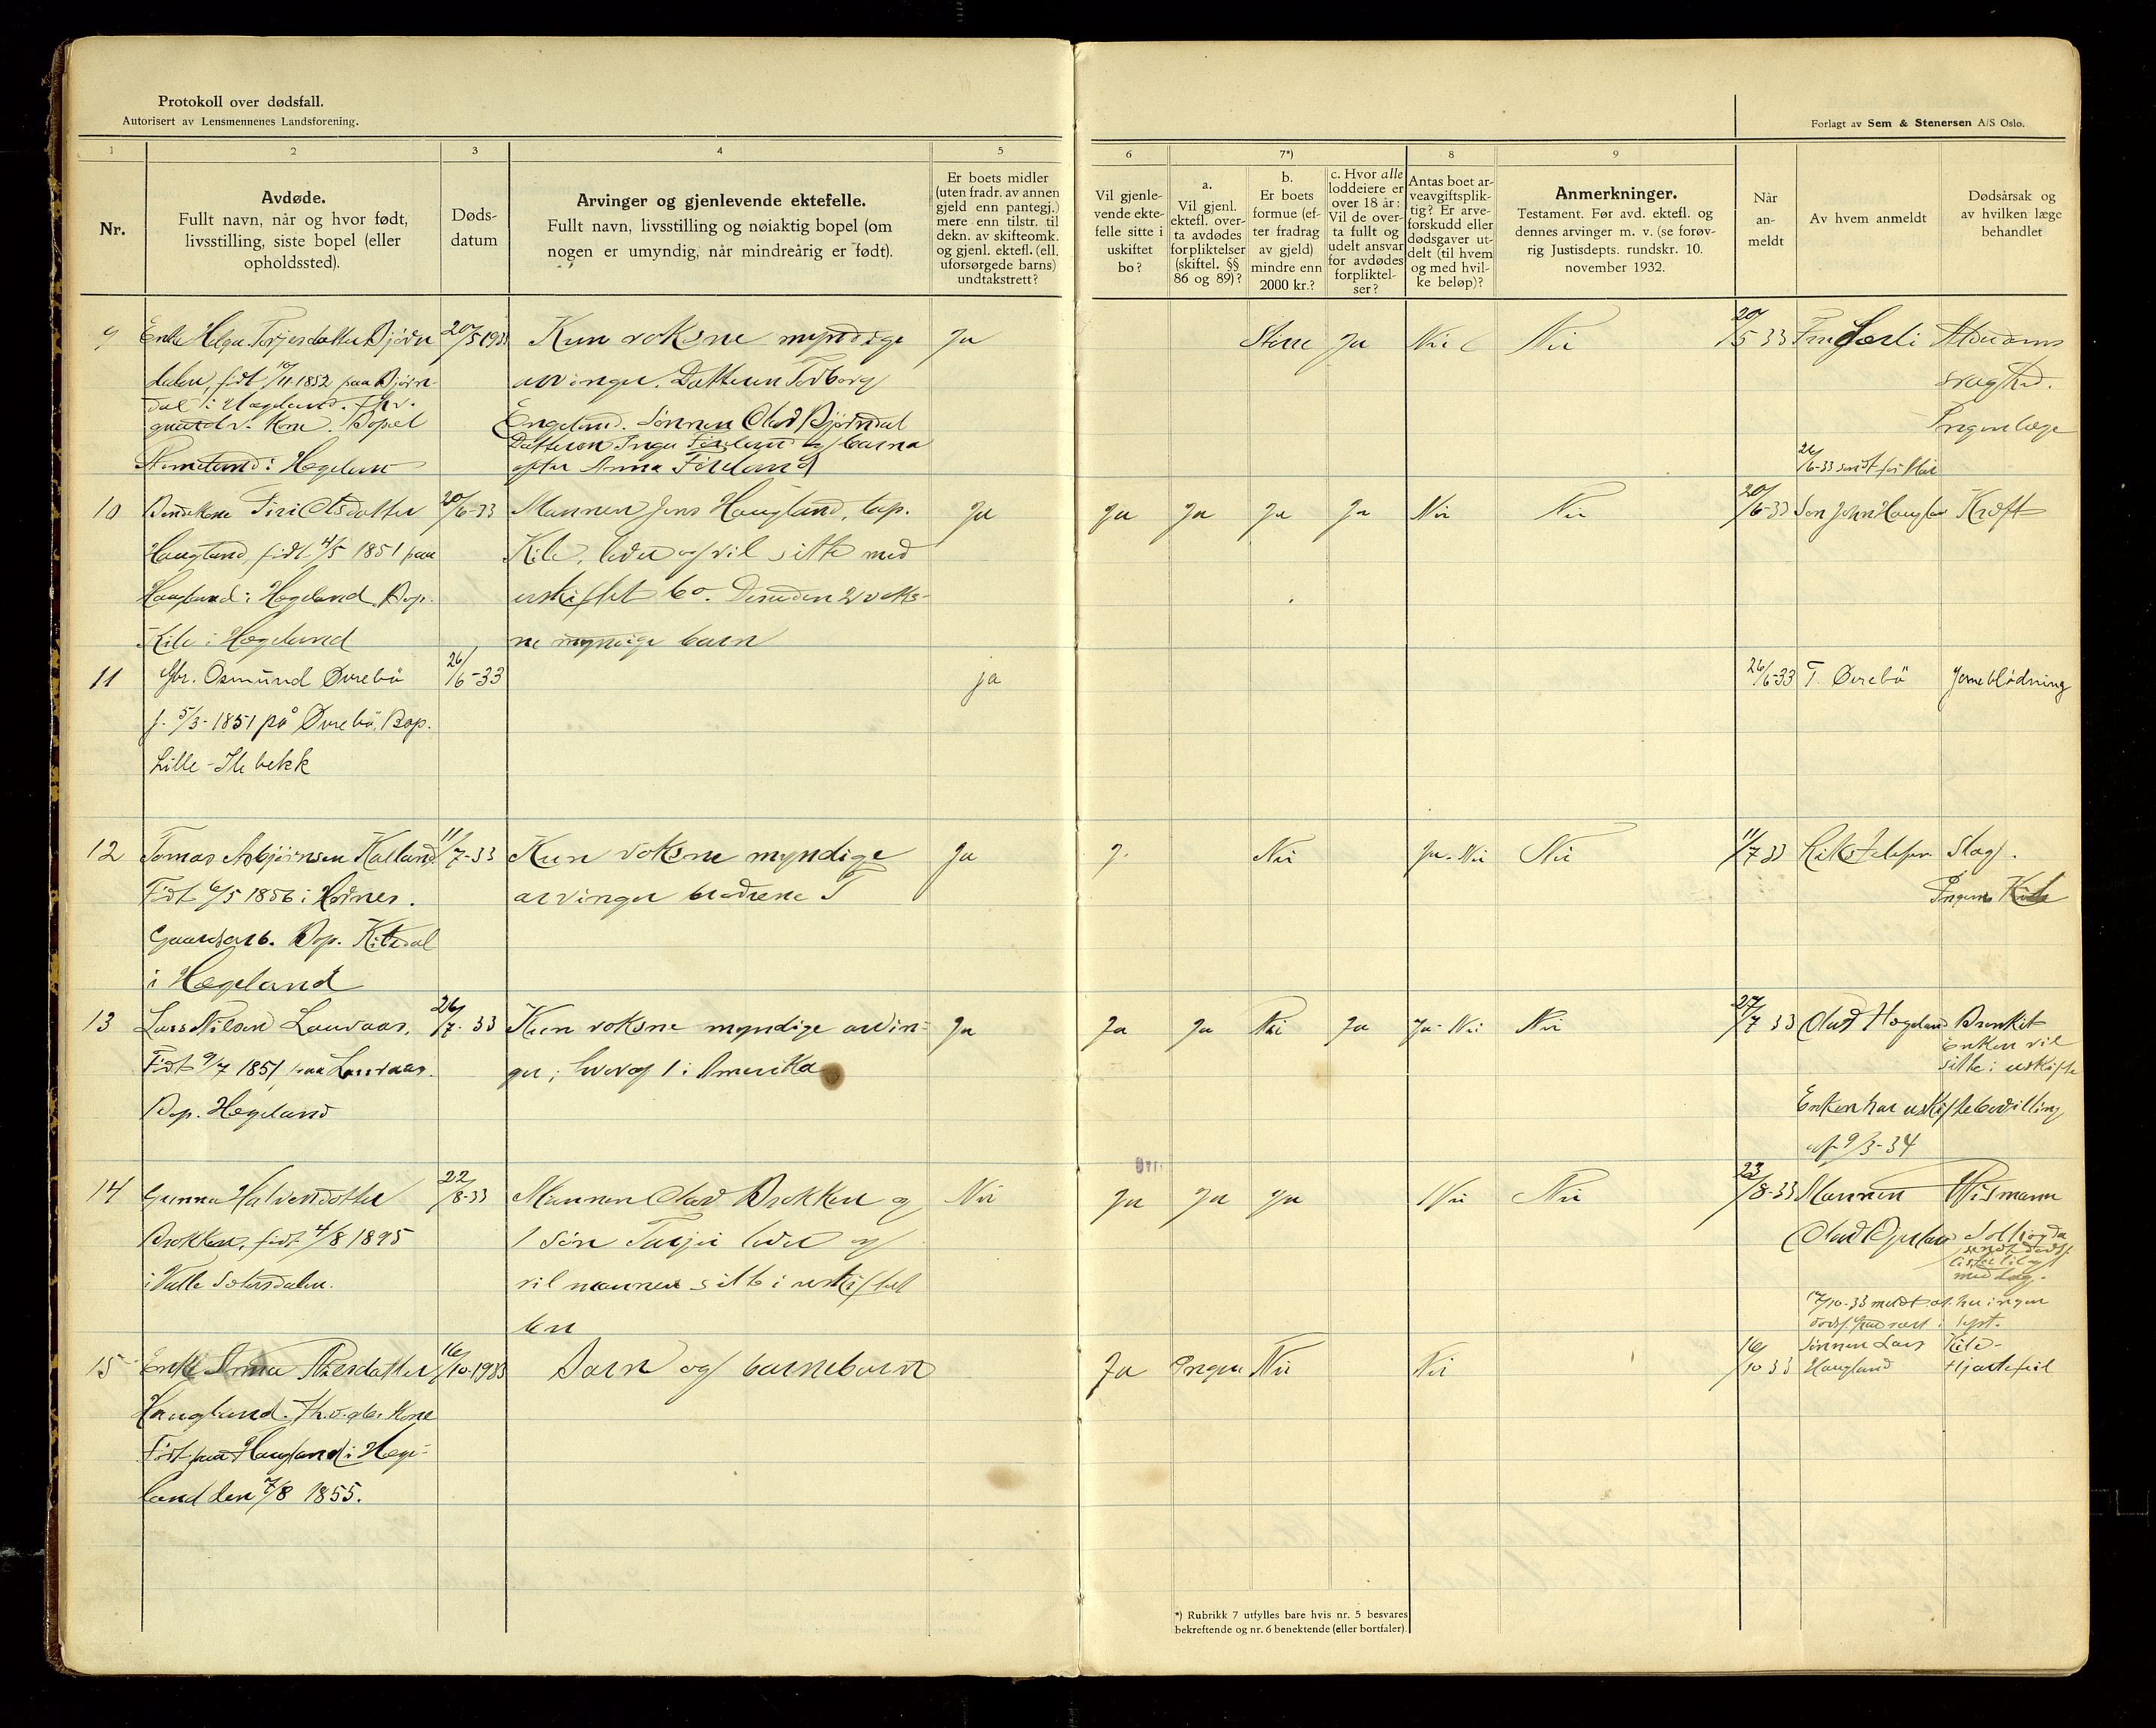 Protokoll over dødsfall.
Autorisert av Lensmennenes Landsforening.
Forlagt av Sem & Stenersen A/S Oslo.
1 2 3 4 5 6 7*) 8 9
Nr.
Avdøde.
Fullt navn, når og hvor født,
livsstilling, siste bopel (eller
opholdssted).
Døds-
datum
Arvinger og gjenlevende ektefelle.
Fullt navn, livsstilling og nøiaktig bopel (om
nogen er umyndig, når mindreårig er født).
Er boets midler
(uten fradr. av annen
gjeld enn pantegj.)
mere enn tilstr. til
dekn. av skifteomk.
og gjenl. ektefl. (ell.
uforsørgede barns)
undtakstrett?
Vil gjenle-
vende ekte-
felle sitte i
uskiftet
bo?
a.
Vil gjenl.
ektefl. over-
ta avdødes
forpliktelser
(skiftel. §§
86 og 89)?
b.
Er boets
formue (ef-
ter fradrag
av gjeld)
mindre enn
2000 kr.?
c. Hvor alle
loddeiere er
over 18 år:
Vil de over-
ta fullt og
udelt ansvar
for avdødes
forpliktel-
ser?
Antas boet ar-
veavgiftsplik-
tig? Er arve-
forskudd eller
dødsgaver ut-
delt (til hvem
og med hvil-
ke beløp)?
Anmerkninger.
Testament. Før avd. ektefl. og
dennes arvinger m. v. (se forøv-
rig Justisdepts. rundskr. 10.
november 1932.
Når
an-
meldt
Av hvem anmeldt
Dødsårsak og
av hvilken læge
behandlet
9
Enke Helga Torjesdatter Bjørn
dalen, født 1852 paa Bjørn-
dal i Hægeland. Fhv.
gaardbr. Kone. Bopel
i Hægeland
20/5 1933
Kun voksne myndige
arvinger. Datteren Torborg
Engeland. Sønnen Olav Bjørndal
Datteren Inga og barna
efter Anna
Ja
Større Ja Nei Nei
20/5 33
Alderdoms
svaghed.
Ingen læge
26/6-33 sendt
10
Siri Olsdatter
Haugland, født 4/5 1851 paa
Haugland i Hægeland. Bop.
Kile i Hægeland
20/6-33
Mannen Jens Haugland, bop.
Kile, lever og vil sitte med
uskiftet bo. Desuden 2 voks-
ne myndige barn
Ja
Ja Ja Ja Ja Nei Nei
20/6-33 Søn John Haugland Kræft
11
Gbr. Osmund Øvrebö
f. 5/3-1851 på Øvrebö, Bop.
Lille-Ilebekk
26/6-33
ja
26/6-33 T. Øvrebö Jerneblödning
12
Tomas Asbjørnsen Kalland
Født 6/5 1856 i Hornes.
Gaardarb. Bop. Kiledal
i Hægeland
11/7-33
Kun voksne myndige
arvinger brødrene T
Ja
J. Nei Ja-Nei Nei
11/7 33 Rikstelefon Slag.
Ingen
13
Lars Nilsen Lauvaas.
Født 9/7 1851 paa Lauvaas.
Bop. Hægeland
26/7-33
Kun voksne myndige arvin-
ger, hvorav 1 i Amerika
Ja
Ja Ja Nei Ja Ja-Nei Nei
27/7 33 Olav Hægeland Bronkit
Enken vil
sitte i uskifte
Enken har uskiftebevilling
af 9/3-34
14
Gunna Halvorsdotter
Brokken, født 4/8 1895
i Valle Setersdalen.
22/8-33
Mannen Olav Brokken og
1 søn Tarjei lever og
vil mannen sitte i uskiftet
bu
Nei
Ja Ja Ja Nei Nei
23/8-33 Mannen
17/10-33 meldt at her ingen
15
Enke Anna Nilsdatter
Haugland. Fh.v. gbr. Kone
Født paa Haugland i Hæge-
land den 7/8 1855.
16/10-1933
Barn og barnebarn
Ja Ingen Nei Nei
16/10 33
Sønnen Lars Kile-
Haugland Hjertefeil
*) Rubrikk 7 utfylles bare hvis nr. 5 besvares
bekreftende og nr. 6 benektende (eller bortfaler).